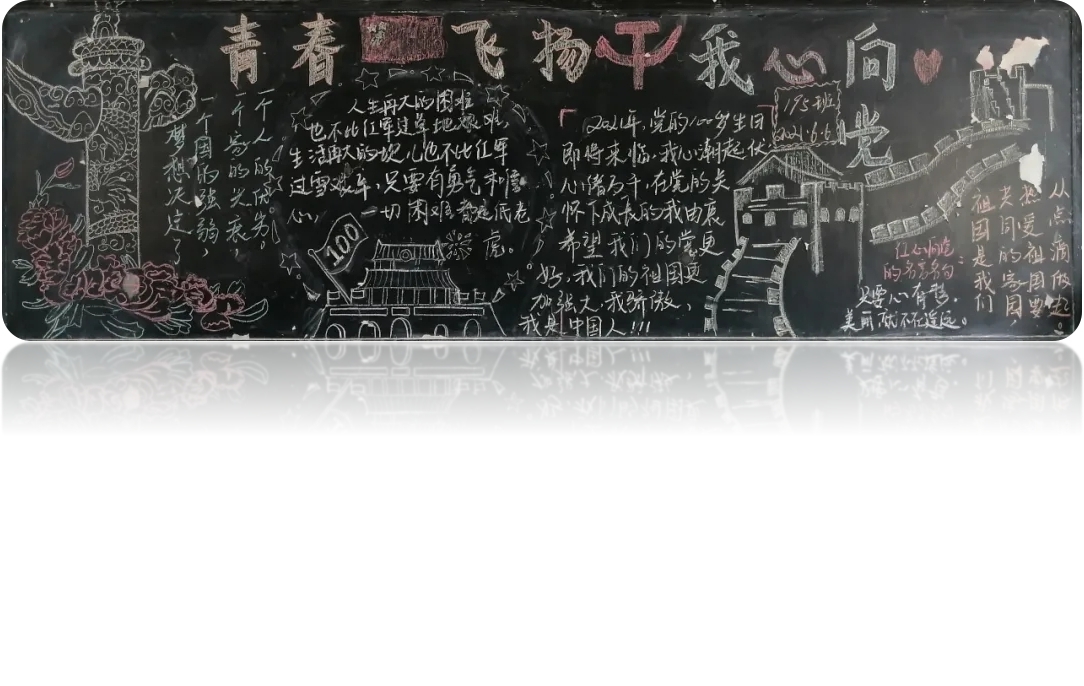 青春飞扬 我心向
党
195班
2021.6.6
一个人的
一个家的兴衰,
一个国的强弱,
梦想决定了
人生再大的困难
也不比红军过草地艰难,
生活再大的坎儿也不比红军
过雪艰辛,只要有勇气和信
心,一切困难都是纸老
虎。
100
2021年,党的100岁生日
即将来临,我心潮起伏
心绪万千,在党的关
怀下成长的我由衷
希望我们的党更
好,我们的祖国更
加强大,我骄傲,
我是中国人!!!
红心向党
的
只要心有梦,
美丽就不在遥远。
从点滴做起。
热爱祖国要
共同的家园,
祖国是我们